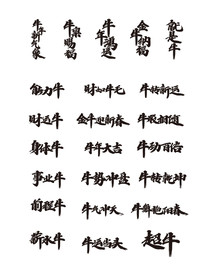 牛年新气象
牛气赐福
牛年鸿运
金牛纳福
就是牛
能力牛
财如牛毛
牛转新运
财运牛
金牛迎新春
牛气相随
身体牛
牛年大吉
牛功百倍
事业牛
牛势冲云
牛转乾坤
前程牛
牛气冲天
牛舞艳阳春
薪水牛
牛运当头
超牛